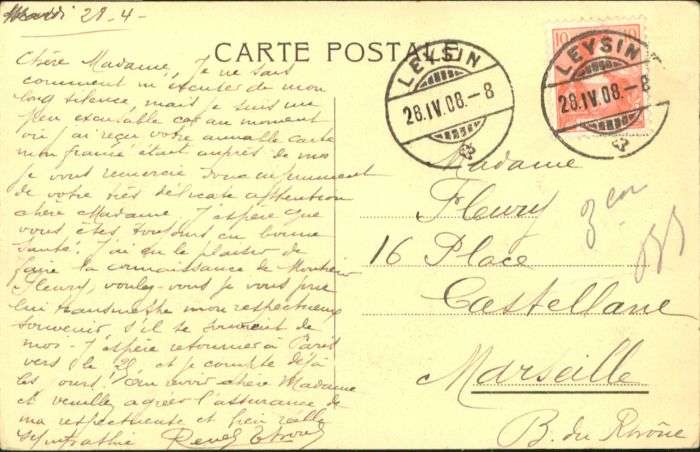 Mardi 28-4-
CARTE POSTALE
Chère Madame, Je ne sais
comment m'excuser de mon
long silence, mais je suis un
peu excusable car au moment
où j'ai reçu votre aimable carte
mon fiancé était auprès de moi
je vous remercie donc infiniment
de votre très délicate attention
chère Madame. J'espère que
vous êtes toujours en bonne
santé. J'ai eu le plaisir de
faire la connaissance de Monsieur
Fleury, voulez-vous je vous prie
lui transmettre mon respectueux
souvenir, s'il se souvient de
moi. J'espère retourner à Paris
vers le 25 et je compte déjà
les jours! Au revoir chère Madame
et veuillez agréer l'assurance de
ma respectueuse et bien réelle
sympathie Renée
LEYSIN
28.IV.08.-8
10
LEYSIN
28.IV.08.-8
Madame
Fleury
16 Place
Castellane
Marseille
B. du Rhône